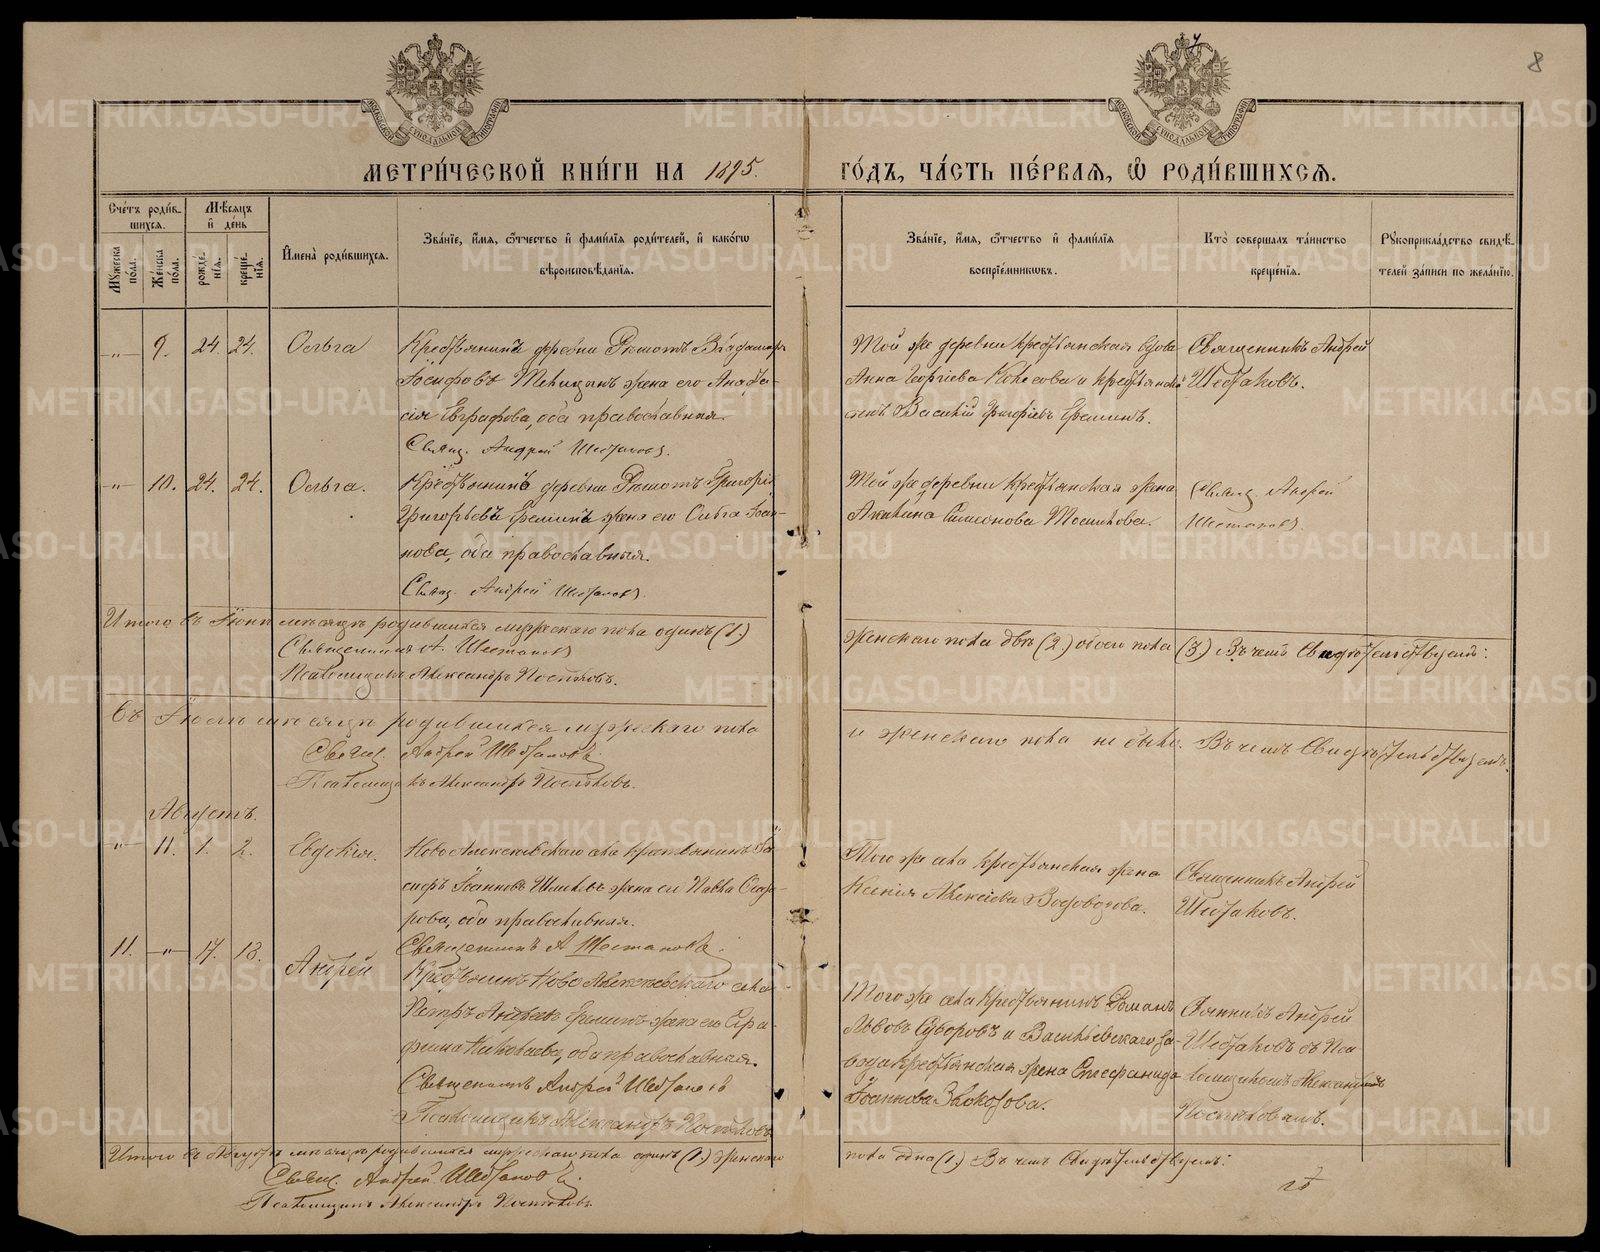 8
МОСКОВСКОЙ СѴНОДАЛЬНОЙ ТИПОГРАФІИ
МОСКОВСКОЙ СѴНОДАЛЬНОЙ ТИПОГРАФІИ
МЕТРИ́ЧЕСКОЙ КНИ́ГИ НА 1895. ГО́ДЪ, ЧА́СТЬ ПЕ́РВАЯ, Ѡ РОДИ́ВШИХСЯ.
Сче́тъ роди́в-
шихся.
Му́жеска по́ла.
Же́нска по́ла.
Мѣ́сяцъ
и де́нь
рожде́нія.
креще́нія.
И҆мена̀ роди́вшихся.
Зва́ніе, и҆́мя, ѻ҆́тчество и҆ фами́лія роди́телей, и҆ како́гѡ
вѣроисповѣ́данія.
Зва́ніе, и҆́мя, ѻ҆́тчество и҆ фами́лія
воспріе́мникѡвъ.
Кто̀ соверша́лъ та́инство
креще́нія.
Рꙋкоприкла́дство свидѣ́-
телей за́писи по жела́нію.
-"- 9. 24. 24. Ольга
Крестьянинъ деревни
Іосифовъ жена его Анаста-
сія Евграфова, оба православные.
Свящ. Андрей Шестаковъ.
Той же деревни крестьянская вдова
Анна Георгіева и крестьян-
инъ Василій Григорьевъ Ереминъ.
Священникъ Андрей
Шестаковъ.
-"- 10. 24. 24. Ольга.
Крестьянинъ деревни Григорій
Григорьевъ Ереминъ жена его Ольга Іоан-
нова, оба православные.
Свящ. Андрей Шестаковъ.
Той же деревни крестьянская жена
Акилина Симеонова
Свящ. Андрей
Шестаковъ.
Итого въ Іюнѣ мѣсяцѣ родившихся мужескаго пола одинъ (1.)
женскаго пола двѣ (2.) обоего пола (3.) Въ чемъ Свидѣтельствуемъ:
Священникъ А. Шестаковъ
Псаломщикъ Александръ Поспѣловъ.
Въ Іюлѣ мѣсяцѣ родившихся мужескаго пола
и женскаго пола не было. Въ чемъ Свидѣтельствуемъ.
Свящ. Андрей Шестаковъ
Псаломщикъ Александръ Поспѣловъ.
Августъ.
-"- 11. 1. 2. Евдокія.
Ново Алексѣевскаго села крестьянинъ Іо-
сифъ Іоанновъ жена его Павла
оба православные.
Священникъ А Шестаковъ.
Того же села крестьянская жена
Ксенія Алексіева
Священникъ Андрей
Шестаковъ.
11. -"- 17. 18. Андрей
Крестьянинъ Ново Алексѣевскаго села
Петръ Андреевъ Ереминъ жена его Сера-
фима Николаева, оба православные.
Священникъ Андрей Шестаковъ
Псаломщикъ Александръ Поспѣловъ
Того же села крестьянинъ Романъ
Львовъ Суворовъ и Васильевскаго за-
вода крестьянская жена Стефанида
Іоаннова
Священникъ Андрей
Шестаковъ съ Пса-
ломщикомъ Александромъ
Поспѣловымъ.
Итого въ Августѣ мѣсяцѣ родившихся мужескаго пола одинъ (1.) женскаго
пола одна (1.) Въ чемъ Свидѣтельствуемъ:
Свящ. Андрей Шестаковъ.
Псаломщикъ Александръ Поспѣловъ.
METRIKI.GASO-URAL.RU